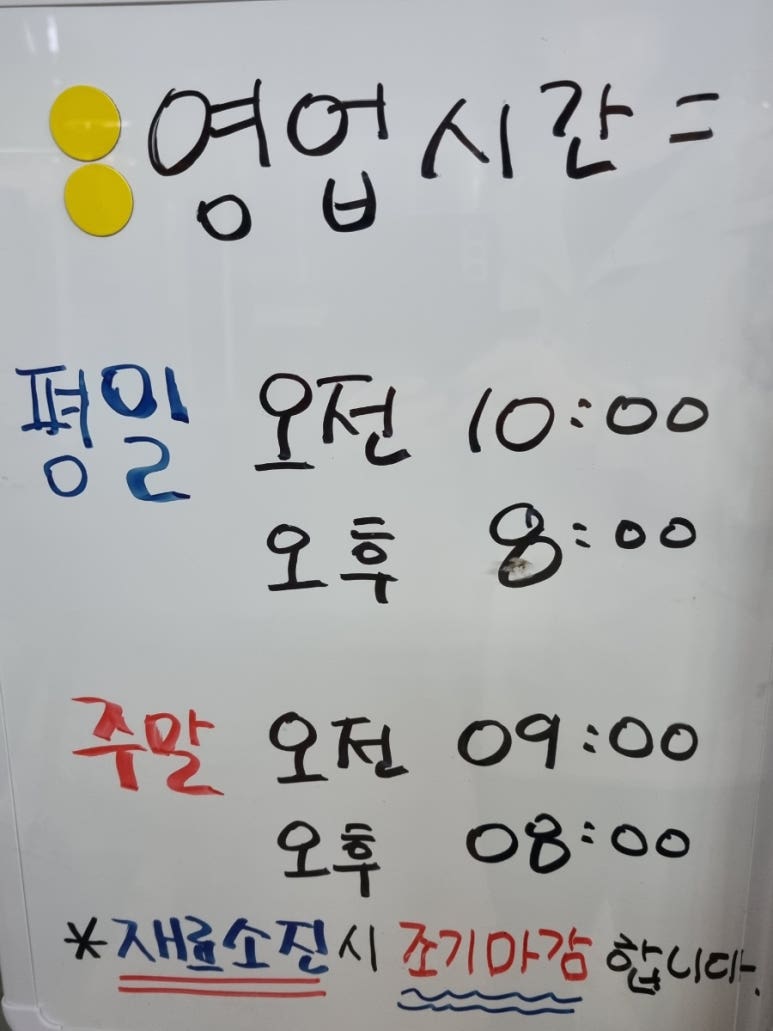 영업시간=
평일 오전 10:00
오후 8:00
주말 오전 09:00
오후 08:00
*재료소진시 조기마감 합니다.